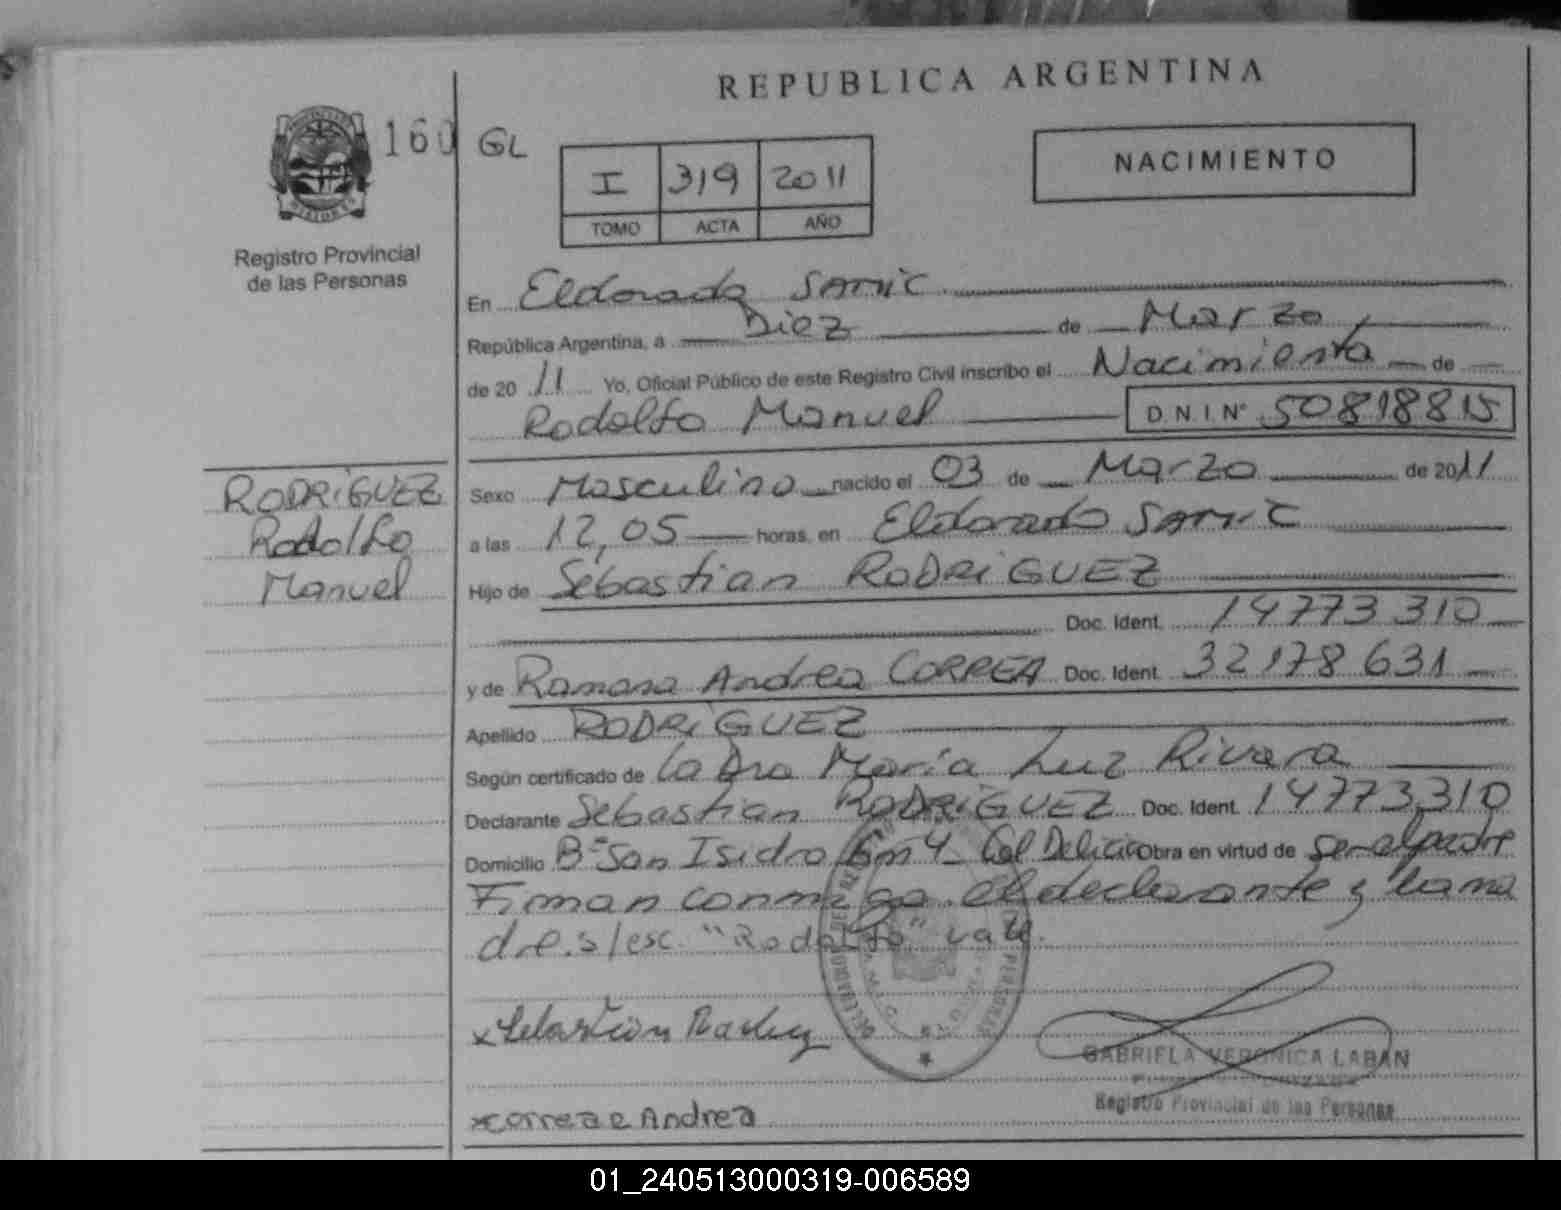 REPUBLICA ARGENTINA
160 GL
NACIMIENTO
I 319 2011
TOMO ACTA AÑO
MISIONES
Registro Provincial
de las Personas
En Eldorado SAMIC
República Argentina, a Diez de Marzo
de 2011 Yo, Oficial Público de este Registro Civil inscribo el Nacimiento de
Rodolfo Manuel D.N.I. Nº 50818815
RODRIGUEZ
Rodolfo
Manuel
Sexo Masculino nacido el 03 de Marzo de 2011
a las 12,05 horas, en Eldorado SAMIC
Hijo de Sebastian RODRIGUEZ
Doc. Ident. 14773310
y de Ramona Andrea CORREA Doc. Ident. 32178631
Apellido RODRIGUEZ
Según certificado de la Dra Maria Luz Rivara
Declarante Sebastian RODRIGUEZ Doc. Ident. 14773310
Domicilio Bº San Isidro Km 4 Col Delicia Obra en virtud de ser el padre
Firman conmigo el declarante y la ma
dre. s/esc. "Rodolfo" vale.
x Sebastian
GABRIELA VERONICA LABAN
Registro Provincial de las Personas
x Correa Andrea
01_240513000319-006589